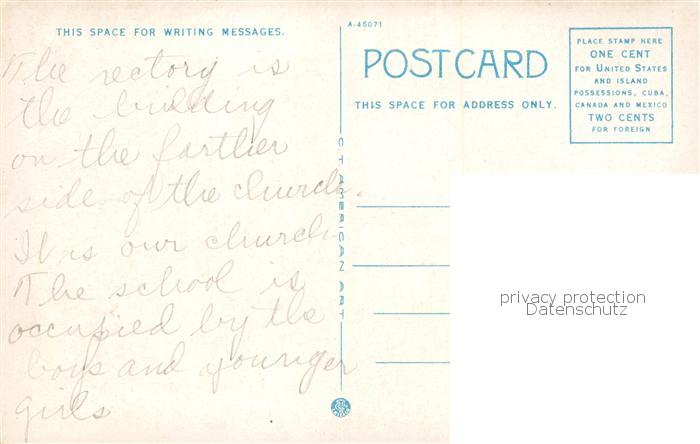 THIS SPACE FOR WRITING MESSAGES.
The rectory is
the building
on the farther
side of the church.
It is our church
The school is
occupied by the
boys and younger
girls
A-45071
POST CARD
THIS SPACE FOR ADDRESS ONLY.
PLACE STAMP HERE
ONE CENT
FOR UNITED STATES
AND ISLAND
POSSESSIONS, CUBA,
CANADA AND MEXICO
TWO CENTS
FOR FOREIGN
C.T. AMERICAN ART
privacy protection
Datenschutz